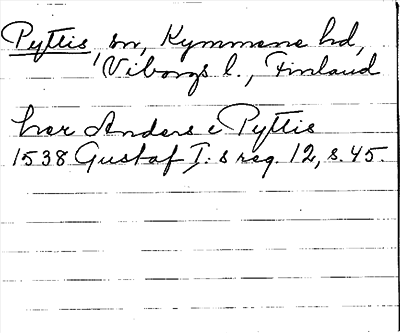 Pyttis, sn, Kymmene hd,
Viborgs l., Finland
her Anders i Pyttis
1538 Gustaf I:s reg. 12, s. 45.